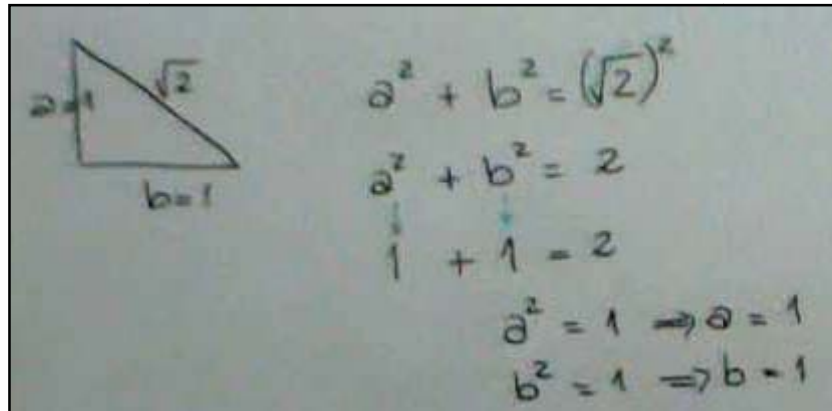 a=1
√2
b=1
a² + b² = (√2)²
a² + b² = 2
1 + 1 = 2
a² = 1 ⇒ a = 1
b² = 1 ⇒ b = 1